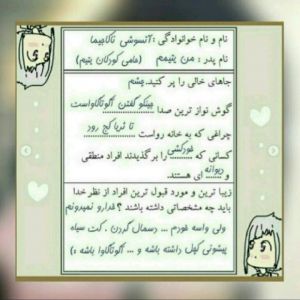 نام و نام خوانوادگی : آتسوشی ناکاجیما
نام پدر : من یتیمم (حامی کودکان یتیم)
جاهای خالی را پر کنید. چشم
گوش نواز ترین صدا هیتکو گفتن آکوتاگاواست
تا ثریا کج رود
چراغی که به خانه رواست
کسانی که خودکشی را بر گذیدند افراد منطقی
و دیوانه ای هستند.
زیبا ترین و مورد قبول ترین افراد از نظر خدا
باید چه مشخصاتی داشته باشند ؟ خدارو نمیدونم
ولی واسه خودم ... دستمال گردن ، کت سیاه
پیشونی کچل داشته باشه و ... آکوتاگاوا باشه :)